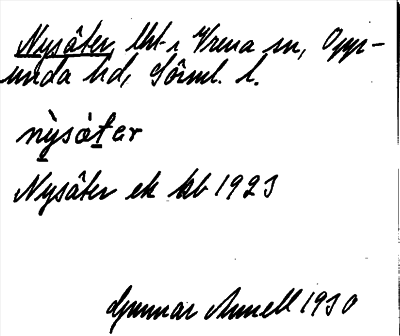 Nysäter, lht i Vrena sn, Opp-
unda hd, Sörml. l.
nỳsàter
Nysäter ek kb 1923
Gunnar Annell 1930